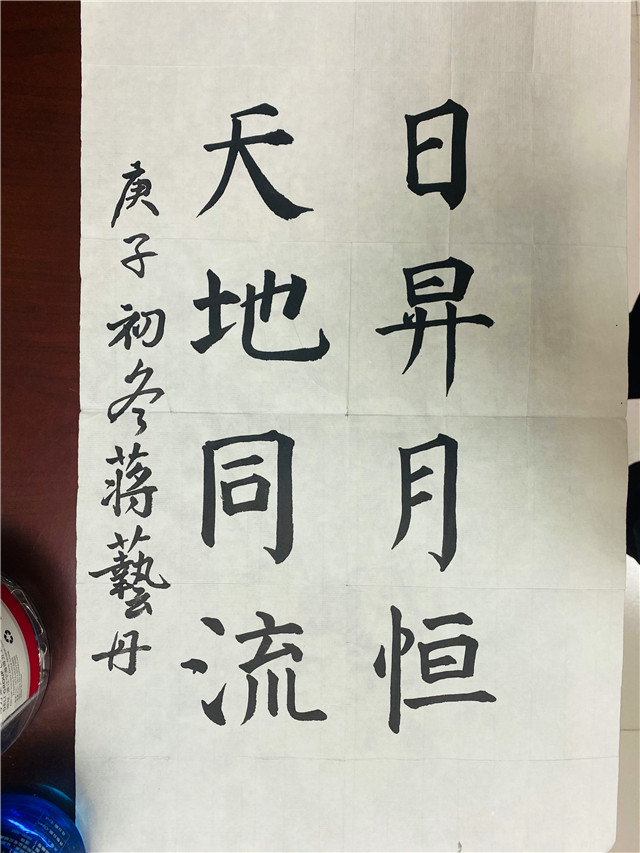 日昇月恒
天地同流
庚子初冬蒋藝丹